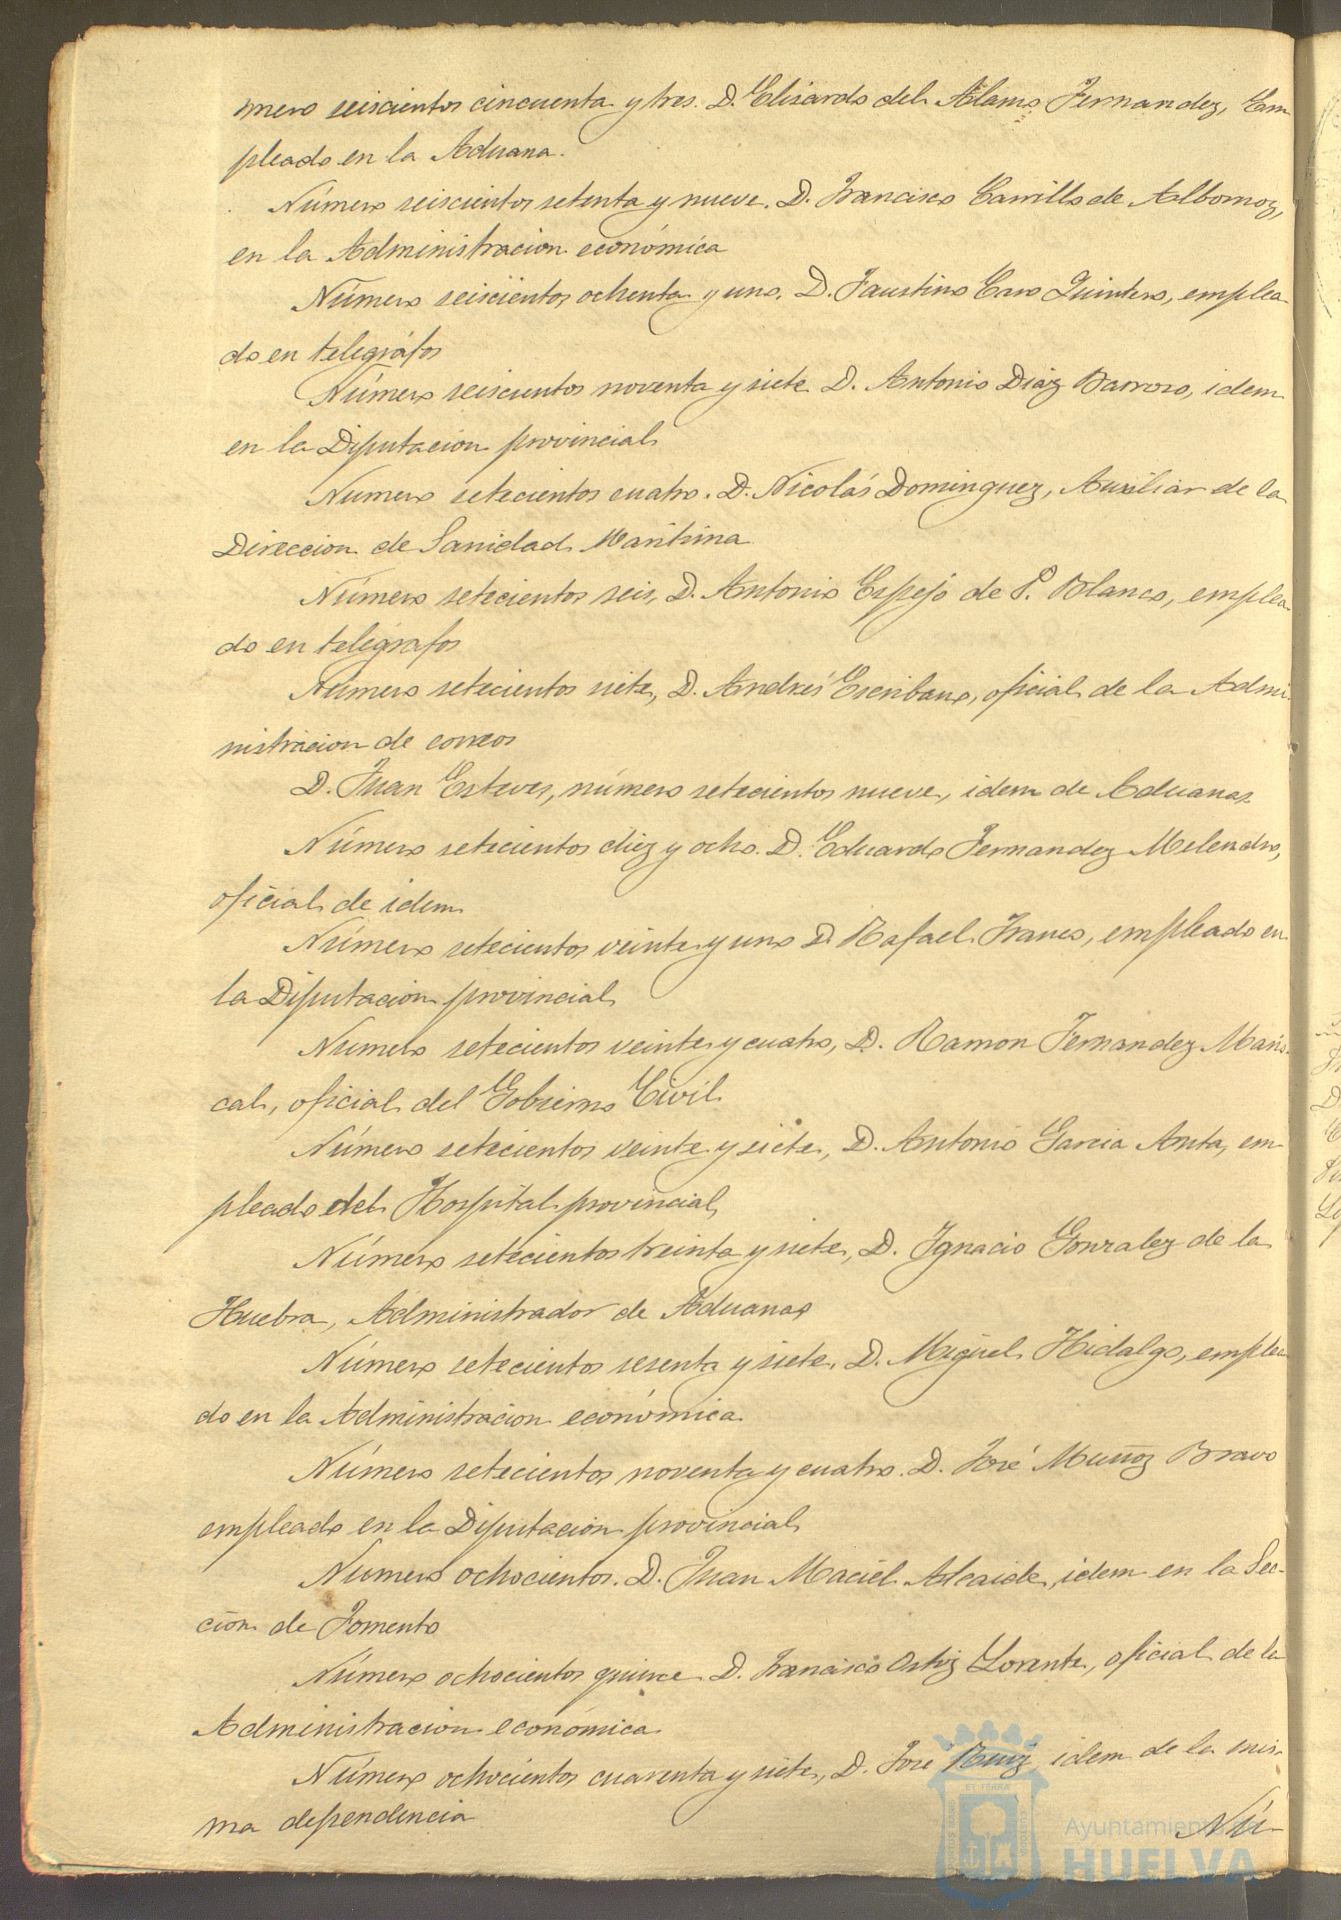 mero seiscientos cincuenta y tres. D. Elisardo del Álamo Fernandez, Em
pleado en la Aduana.
Número seiscientos setenta y nueve. D. Francisco Carrillo de Albornoz,
en la Administracion económica
Número seiscientos ochenta y uno. D. Faustino Caro Quintero, emplea
do en telegráfos
Número seiscientos noventa y siete D. Antonio Diáz Barroso, idem
en la Diputacion provincial
Numero setecientos cuatro. D. Nicolás Dominguez, Auxiliar de la
Direccion de Sanidad Maritima
Número setecientos seis, D. Antonio Espejo de P. Blanco, emplea
do en telégrafos
Número setecientos siete, D. Andrés Escribano, oficial de la Admi
nistracion de correos
D. Juan Esteves, número setecientos nueve, idem de Aduanas
Número setecientos diez y ocho. D. Eduardo Fernandez Melendro,
oficial de idem
Número setecientos veinte y uno D. Rafael Franco, empleado en
la Diputacion provincial
Numero setecientos veinte y cuatro, D. Ramon Fernandez Maris
cal, oficial del Gobierno Civil
Número setecientos veinte y siete, D. Antonio Garcia em
pleado del Hospital provincial
Número setecientos treinta y siete, D. Ignacio Gonzalez de la
Huebra, Administrador de Aduanas
Número setecientos sesenta y siete. D. Miguel Hidalgo, emplea
do en la Administracion económica
Número setecientos noventa y cuatro. D. José Muñoz Bravo
empleado en la Diputacion provincial
Numero ochocientos. D. Juan Maciel Alcaide, idem en la Sec-
cion de Fomento
Número ochocientos quince D. Francisco Ortiz Lorente, oficial de la
Administracion económica
Número ochocientos cuarenta y siete, D. José Ruiz, idem de la mis-
ma dependencia
Nú-
Ayuntamiento de
HUELVA